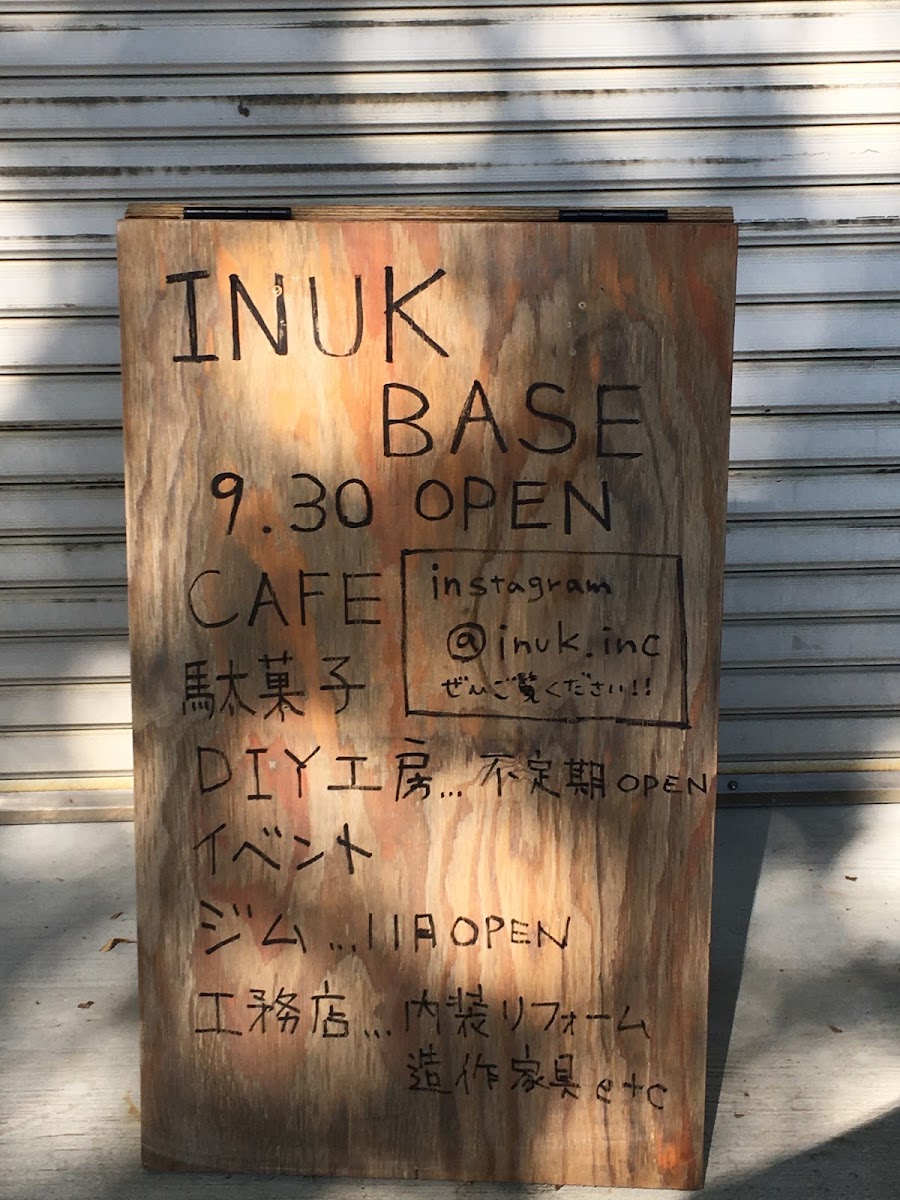 INUK
BASE
9.30 OPEN
CAFE
instagram
@inuk.inc
ぜひご覧ください!!
駄菓子
DIY工房...不定期OPEN
イベント
ジム...11月OPEN
工務店...内装リフォーム
造作家具etc